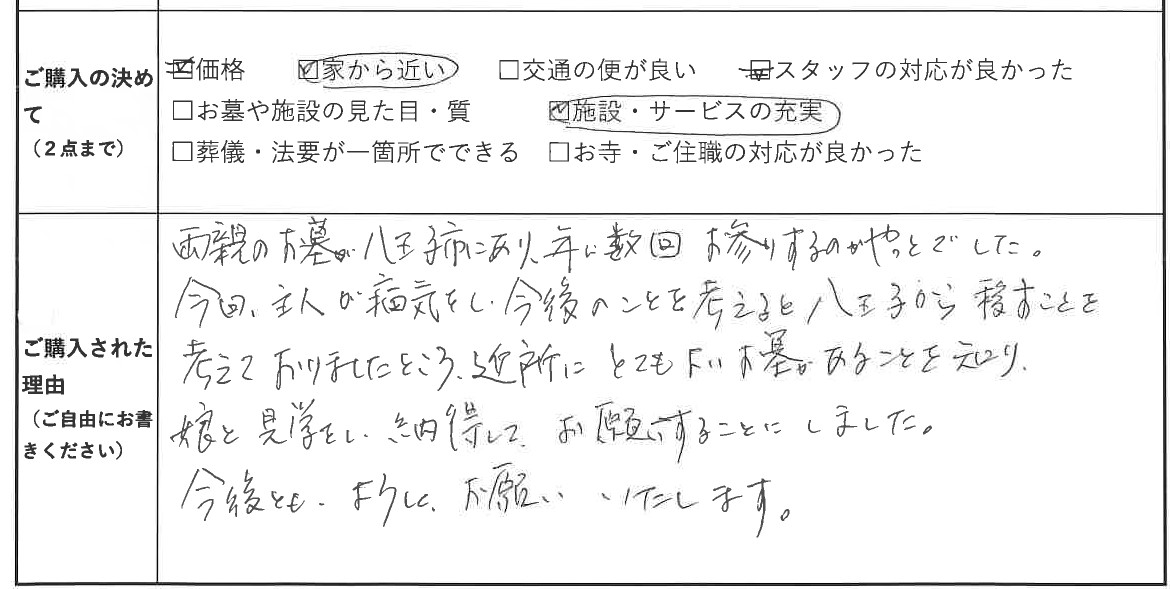 ご購入の決めて
(2点まで)
☑価格 ☑家から近い □交通の便が良い ☑スタッフの対応が良かった
□お墓や施設の見た目・質 ☑施設・サービスの充実
□葬儀・法要が一箇所でできる □お寺・ご住職の対応が良かった
ご購入された
理由
(ご自由にお書
きください)
両親のお墓が八王子市にあり、年に数回 お参りするのがやっとでした。
今回、主人が病気をし、今後のことを考えると八王子から移すことを
考えておりましたところ、近所にとてもよいお墓があることを知り、
娘と見学をし、納得して、お願いすることにしました。
今後とも、よろしく、お願い いたします。